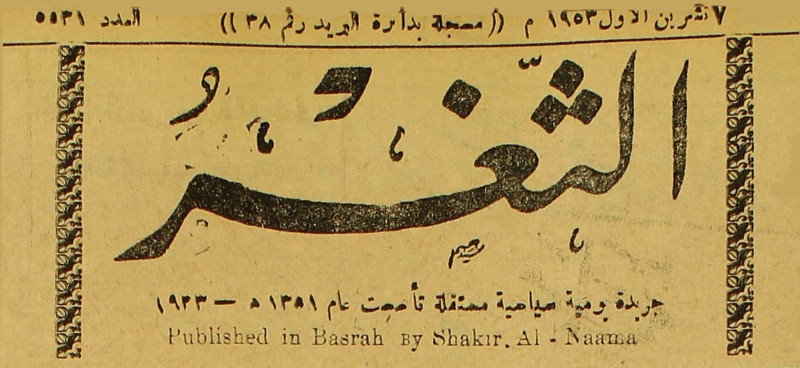 ٧ تشرين الاول ١٩٥٣ م (( مسجلة بدائرة البريد رقم ٣٨ )) العدد ٥٥٣١
الثغر
جريدة يومية سياسية مستقلة تأسست عام ١٣٥١ ه — ١٩٣٣
Published in Basrah By Shakir. Al - Naama